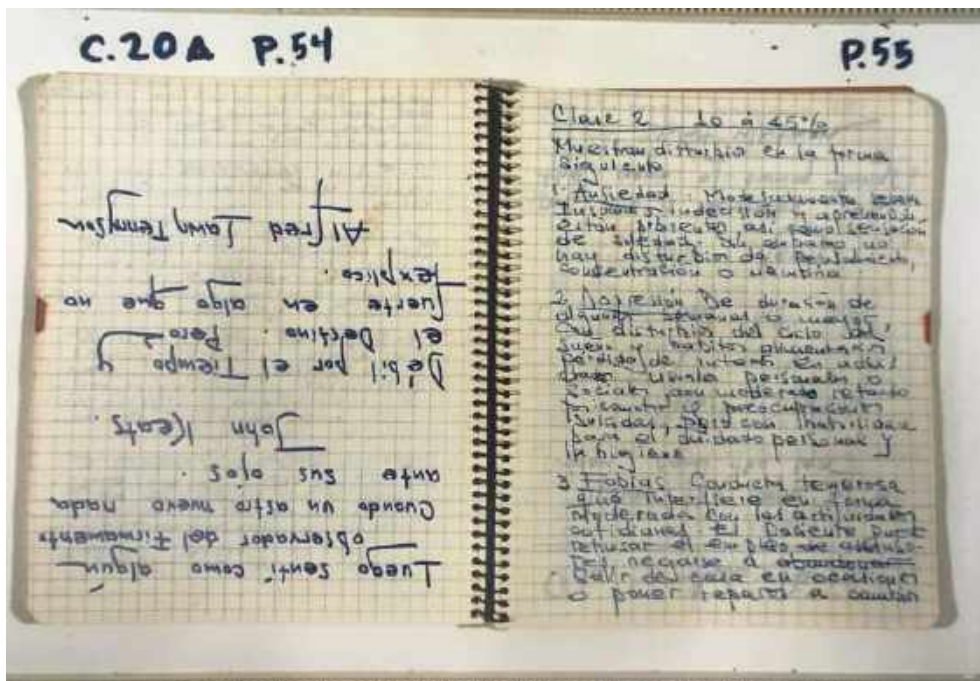 C.20A P.54
P.55
Luego sentí como algún
observador del Firmamento
Cuando un astro nuevo nada
ante sus ojos.
John Keats.
Débil por el Tiempo y
el Destino. Pero
fuerte en algo que no
explico.
Alfred Lawn Tennyson
Clase 2 10 a 45%
Muestran disturbios en la forma
siguiente
1. Ansiedad. Moderadamente
indecisión y
así como sensación
de no
hay disturbios de pensamiento,
concentración o
2. Depresión De duración de
algunas semanas o mayor
Con disturbios del ciclo del
sueño y hábitos alimentarios
pérdida de interés en
personales o
sociales con moderado retardo
y preocupaciones
pero con
para el cuidado personal y
la higiene
3. Fobias Conducta temerosa
que interfiere en forma
moderada con las actividades
cotidianas El paciente puede
rehusar el empleo de
negarse a
salir de casa en ocasiones
o poner reparos a